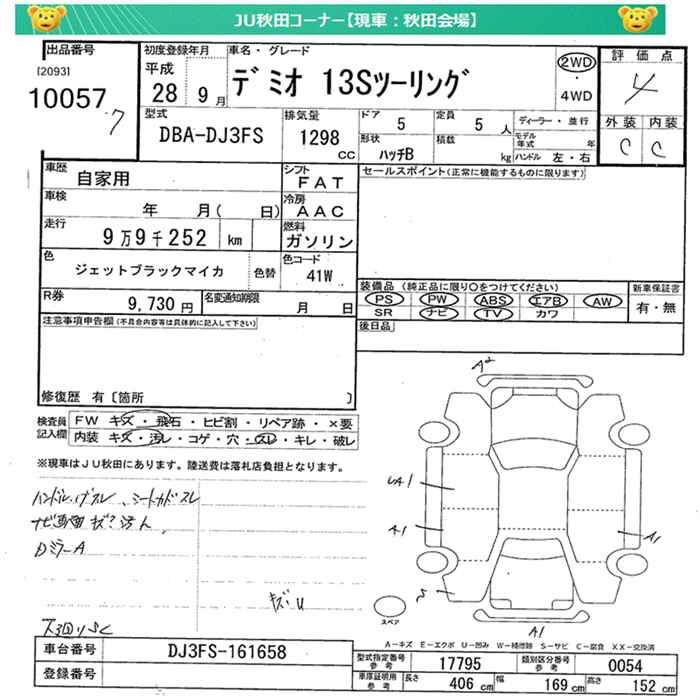 JU秋田コーナー【現車：秋田会場】
出品番号
[2093]
10057
7
初度登録年月
平成
28 9月
車名・グレード
デミオ 13Sツーリング
2WD
4WD
評価点
4
外装 内装
C C
型式
DBA-DJ3FS
排気量
1298
CC
ドア
5
形状
ハッチB
定員
5人
積載
kg
ディーラー・並行
モデル年式 年
ハンドル 左・右
車歴
自家用
シフト
FAT
車検
年 月( 日)
冷房
AAC
走行
9万9千252 km
燃料
ガソリン
色
ジェットブラックマイカ
色替
色コード
41W
R券
9,730円
名変通知期限
月 日
セールスポイント(正常に機能するものに限ります)
装備品 (純正品に限り○をつけてください)
PS PW ABS エアB AW
SR ナビ TV カワ
新車保証書
有・無
後日品
注意事項申告欄(不具合内容等は具体的に記入して下さい)
修復歴 有〔箇所 〕
検査員記入欄
FW キズ・飛石・ヒビ割・リペア跡・×要
内装 キズ・汚レ・コゲ・穴・スレ・キレ・破レ
※現車はJU秋田にあります。陸送費は落札店負担となります。
ハンドル、
シートカドスレ
DミラーA
キズ、U
A2
UA1
A1
A1
S
A1
スペア
A－キズ E－エクボ U－凹み W－補修跡 S－サビ C－腐食 XX－交換済
車台番号
DJ3FS-161658
登録番号
型式指定番号
参考
17795
類別区分番号
参考
0054
車庫証明用
参考
長さ
406 cm
幅
169 cm
高さ
152 cm